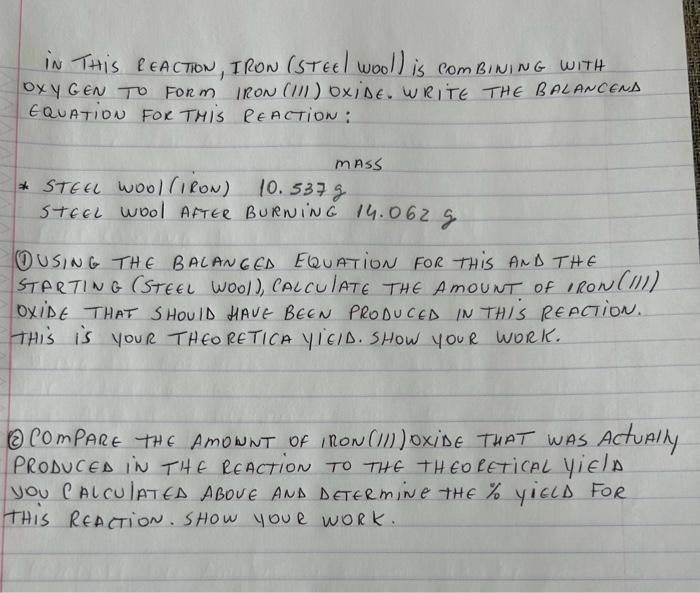 IN THIS REACTION, IRON (STEEL wool) is COMBINING WITH
OXYGEN TO FORM IRON (III) OXIDE. WRITE THE BALANCEND
EQUATION FOR THIS REACTION:
MASS
* STEEL WOOl (IRON) 10.537 g
STEEL WOOL AFTER BURNING 14.062 g
① USING THE BALANCED EQUATION FOR THIS AND THE
STARTING (STEEL WOOl), CALCULATE THE AMOUNT OF IRON (III)
OXIDE THAT SHOULD HAVE BEEN PRODUCED IN THIS REACTION.
THIS IS YOUR THEORETICA YIELD. SHOW YOUR WORK.
② COMPARE THE AMOUNT OF IRON (III) OXIDE THAT WAS ACTUALLY
PRODUCED IN THE REACTION TO THE THEORETICAL YIELD
YOU CALCULATED ABOVE AND DETERMINE THE % YIELD FOR
THIS REACTION. SHOW YOUR WORK.